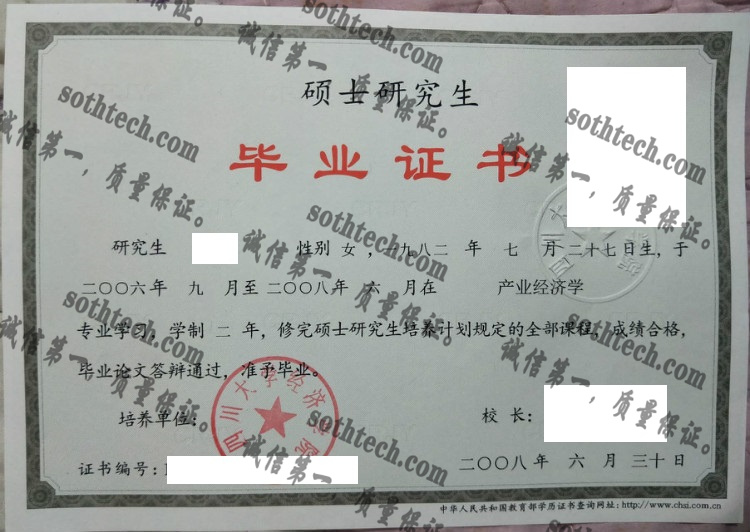 硕士研究生
毕业证书
研究生 性别 女，一九八二 年 七 月 二十七日生，于
二〇〇六年 九 月至二〇〇八年 六 月在 产业经济学
专业学习，学制 二 年，修完硕士研究生培养计划规定的全部课程，成绩合格，
毕业论文答辩通过，准予毕业。
四川大学经济学院
培养单位：
校 长：
证书编号：
二〇〇八年 六 月 三十日
中华人民共和国教育部学历证书查询网址：http://www.chsi.com.cn
sothtech.com
诚信第一，质量保证。
sothtech.com
诚信第一，质量保证。
sothtech.com
诚信第一，质量保证。
sothtech.com
诚信第一，质量保证。
sothtech.com
诚信第一，质量保证。
sothtech.com
诚信第一，质量保证。
sothtech.com
诚信第一，质量保证。
sothtech.com
诚信第一，质量保证。